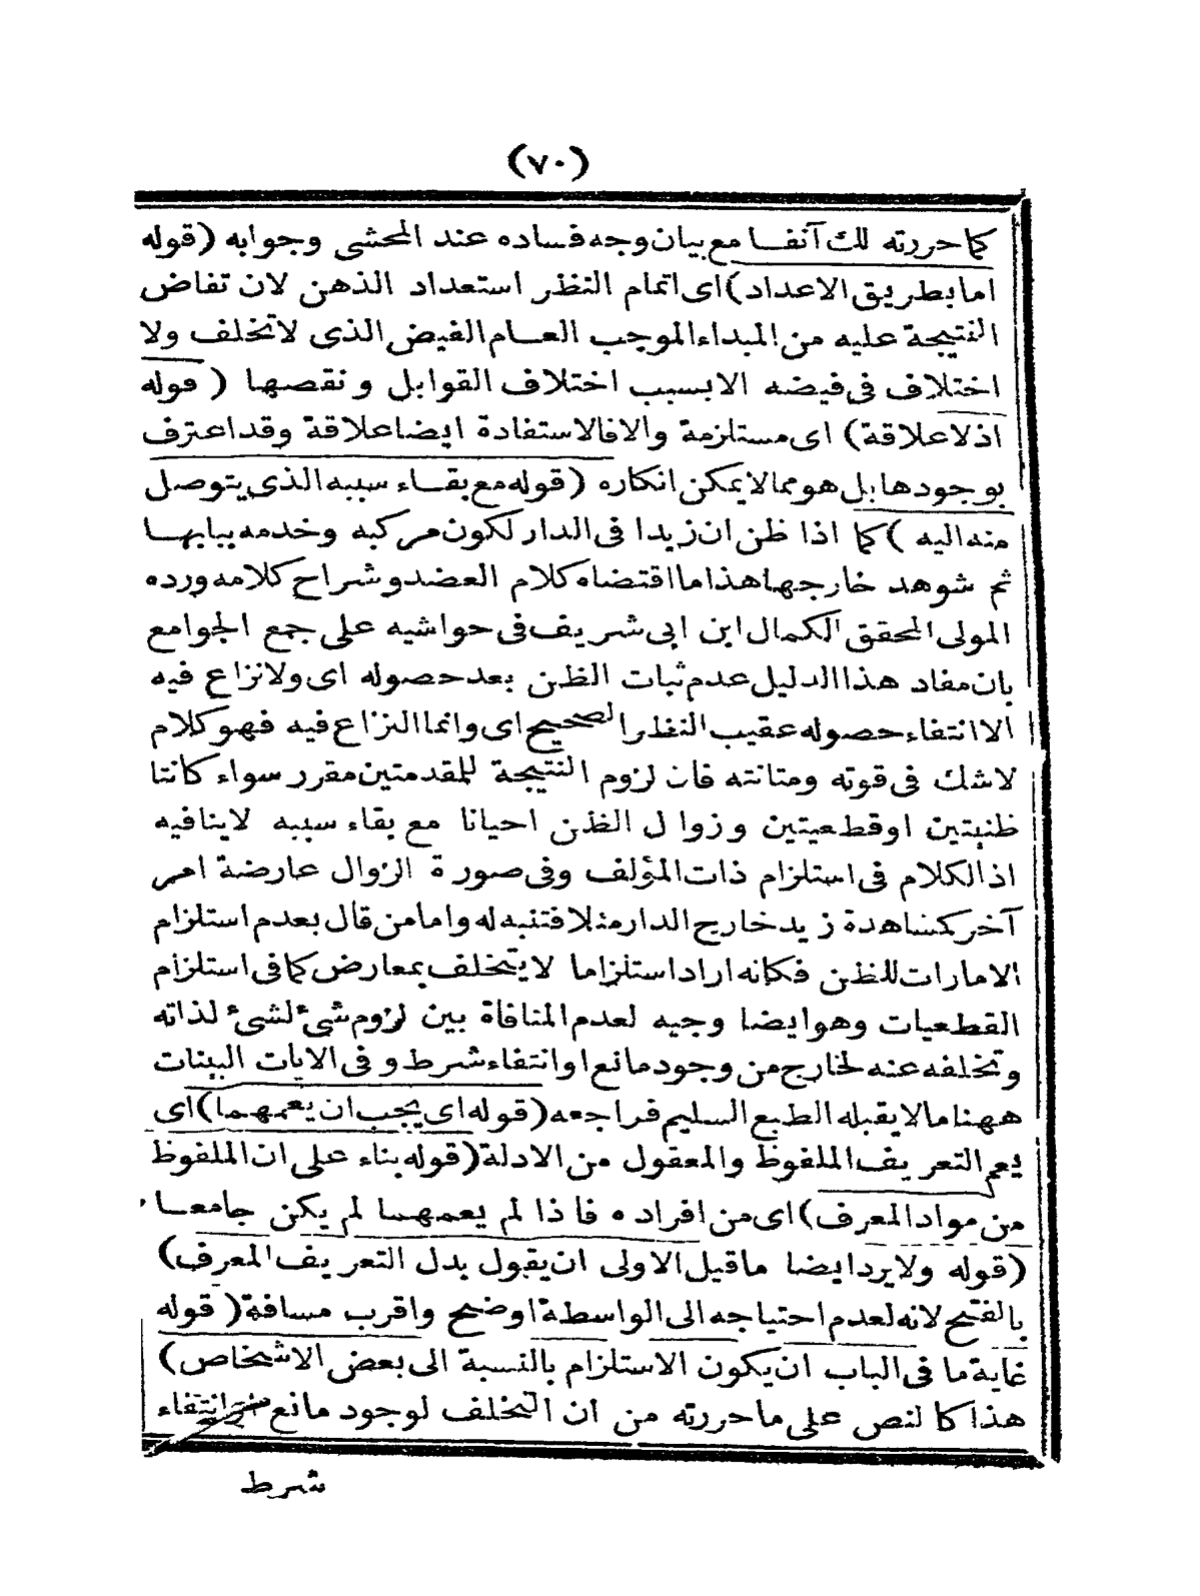 (٧٠)
كما حررته لك آنفا مع بيان وجه فساده عند المحشى وجوابه (قوله
اما بطريق الاعداد) اى اتمام النظر استعداد الذهن لان تفاض
النتيجة عليه من المبداء الموجب العام الفيض الذى لا تخلف ولا
اختلاف فى فيضه الا بسبب اختلاف القوابل ونقصها (قوله
اذ لا علاقة) اى مستلزمة والا فالاستفادة ايضا علاقة وقد اعترف
بوجودها بل هو مما لا يمكن انكاره (قوله مع بقاء سببه الذى يتوصل
منه اليه) كما اذا ظن ان زيدا فى الدار لكون مركبه وخدمه ببابها
ثم شوهد خارجها هذا ما اقتضاه كلام العضد وشراح كلامه ورده
المولى المحقق الكمال ابن ابى شريف فى حواشيه على جمع الجوامع
بان مفاد هذا الدليل عدم ثبات الظن بعد حصوله اى ولا نزاع فيه
الا انتفاء حصوله عقيب النظر الصحيح اى وانما النزاع فيه فهو كلام
لا شك فى قوته ومتانته فان لزوم النتيجة للمقدمتين مقرر سواء كانتا
ظنيتين او قطعيتين وزوال الظن احيانا مع بقاء سببه لا ينافيه
اذ الكلام فى استلزام ذات المؤلف وفى صورة الزوال عارضة امر
آخر كمشاهدة زيد خارج الدار مثلا فتنبه له واما من قال بعدم استلزام
الامارات للظن فكانه اراد استلزاما لا يتخلف بمعارض كما فى استلزام
القطعيات وهو ايضا وجيه لعدم المنافاة بين لزوم شىء لشىء لذاته
وتخلفه عنه لخارج من وجود مانع او انتفاء شرط وفى الايات البينات
ههنا ما لا يقبله الطبع السليم فراجعه (قوله اى يجب ان يعمهما) اى
يعم التعريف الملفوظ والمعقول من الادلة (قوله بناء على ان الملفوظ
من مواد المعرف) اى من افراده فاذا لم يعمهما لم يكن جامعا
(قوله ولا يرد ايضا ما قيل الاولى ان يقول بدل التعريف المعرف)
بالفتح لانه لعدم احتياجه الى الواسطة اوضح واقرب مسافة (قوله
غاية ما فى الباب ان يكون الاستلزام بالنسبة الى بعض الاشخاص)
هذا كالنص على ما حررته من ان التخلف لوجود مانع او انتفاء
شرط